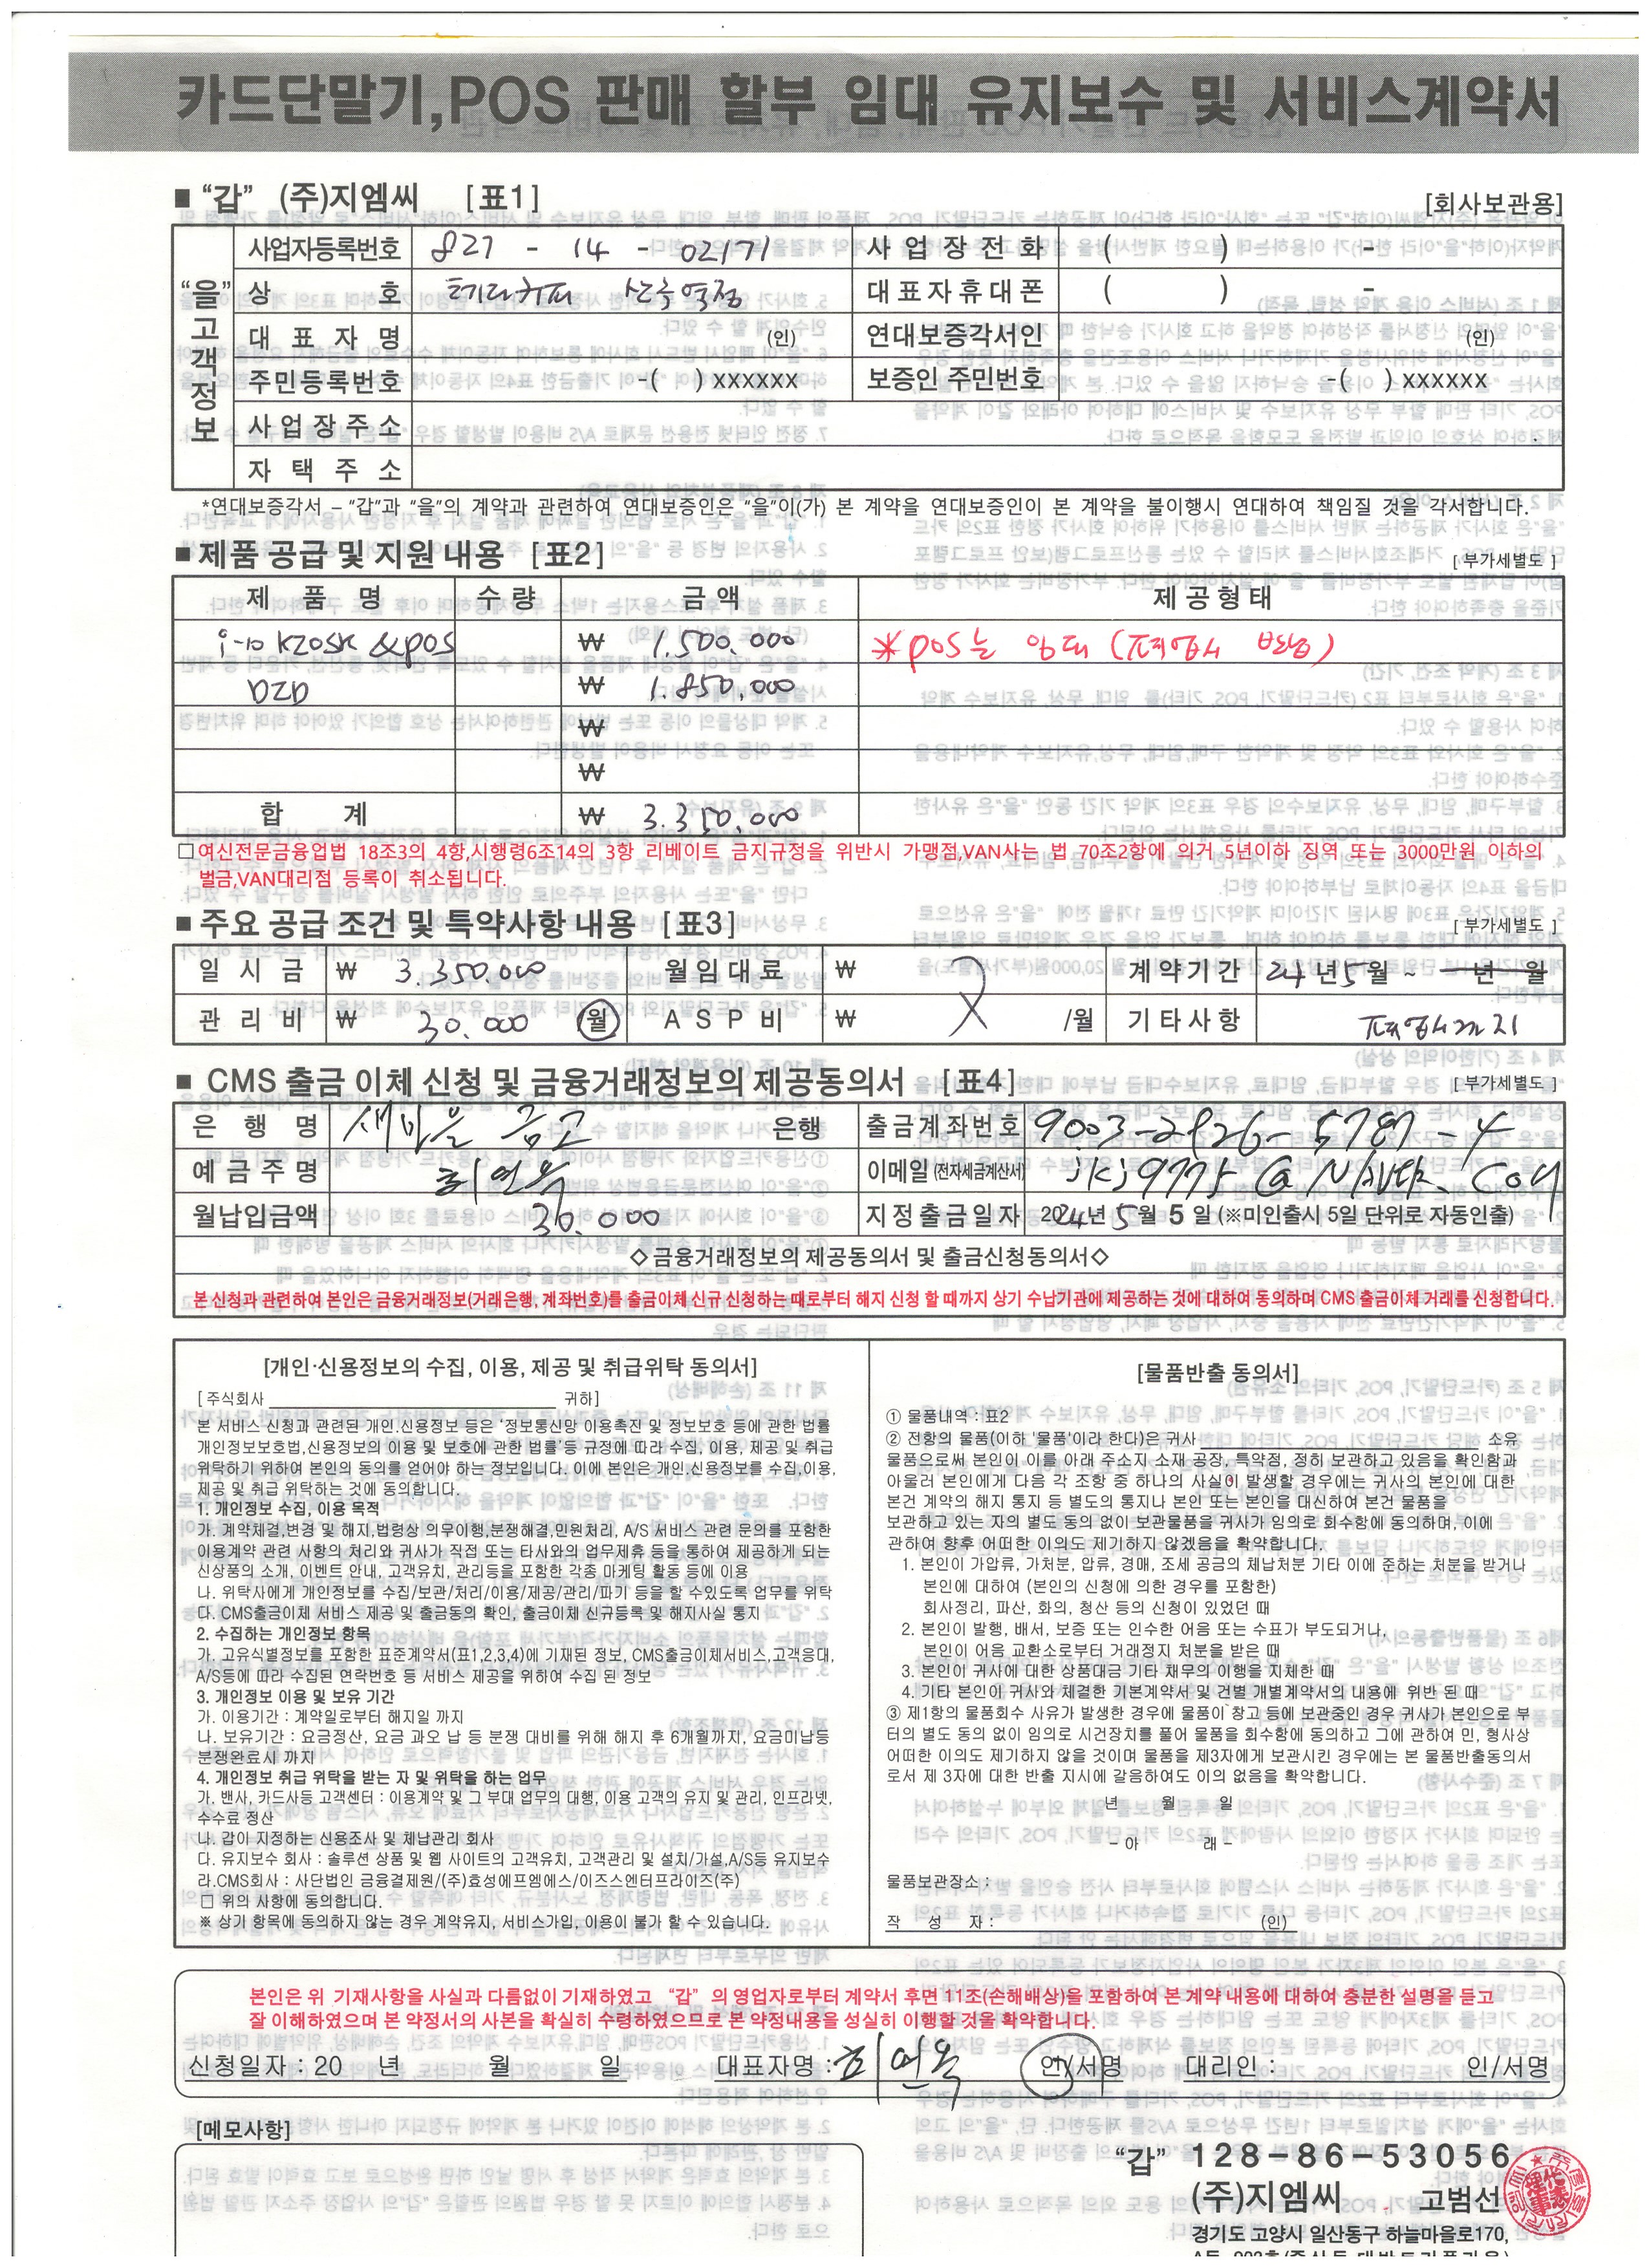 카드단말기,POS 판매 할부 임대 유지보수 및 서비스계약서
■ “갑” (주)지엠씨 [표1]
[회사보관용]
“을” 고객정보
사업자등록번호 827 - 14 - 02171 사업장전화 ( ) -
상호 산죽역점 대표자휴대폰 ( ) -
대표자명 (인) 연대보증각서인 (인)
주민등록번호 -( ) XXXXXX 보증인 주민번호 -( ) XXXXXX
사업장주소
자택주소
*연대보증각서 – “갑”과 “을”의 계약과 관련하여 연대보증인은 “을”이(가) 본 계약을 연대보증인이 본 계약을 불이행시 연대하여 책임질 것을 각서합니다.
■ 제품 공급 및 지원 내용 [표2]
[ 부가세별도 ]
제품명 수량 금액 제공형태
i-10 KIOSK &POS ₩ 1.500.000 *POS는 임대 (폐업시 반납)
DID ₩ 1.850.000
₩
₩
합계 ₩ 3.350.000
□여신전문금융업법 18조3의 4항,시행령6조14의 3항 리베이트 금지규정을 위반시 가맹점,VAN사는 법 70조2항에 의거 5년이하 징역 또는 3000만원 이하의
벌금,VAN대리점 등록이 취소됩니다.
■ 주요 공급 조건 및 특약사항 내용 [표3]
[ 부가세별도 ]
일시금 ₩ 3.350.000 월임대료 ₩ 계약기간 24년5월 ~ 년 월
관리비 ₩ 30.000 월 ASP비 ₩ /월 기타사항 폐업시까지
■ CMS 출금 이체 신청 및 금융거래정보의 제공동의서 [표4]
[ 부가세별도 ]
은행명 새마을 금고 은행 출금계좌번호 9003-2826-5787-4
예금주명 최연옥 이메일(전자세금계산서)
월납입금액 30.000 지정출금일자 2024년 5월 5일 (※미인출시 5일 단위로 자동인출)
◇금융거래정보의 제공동의서 및 출금신청동의서◇
본 신청과 관련하여 본인은 금융거래정보(거래은행, 계좌번호)를 출금이체 신규 신청하는 때로부터 해지 신청 할 때까지 상기 수납기관에 제공하는 것에 대하여 동의하며 CMS 출금이체 거래를 신청합니다.
[개인·신용정보의 수집, 이용, 제공 및 취급위탁 동의서]
[ 주식회사 귀하]
본 서비스 신청과 관련된 개인.신용정보 등은 ‘정보통신망 이용촉진 및 정보보호 등에 관한 법률
개인정보보호법,신용정보의 이용 및 보호에 관한 법률’ 등 규정에 따라 수집, 이용, 제공 및 취급
위탁하기 위하여 본인의 동의를 얻어야 하는 정보입니다. 이에 본인은 개인,신용정보를 수집,이용,
제공 및 취급 위탁하는 것에 동의합니다.
1. 개인정보 수집, 이용 목적
가. 계약체결,변경 및 해지,법령상 의무이행,분쟁해결,민원처리, A/S 서비스 관련 문의를 포함한
이용계약 관련 사항의 처리와 귀사가 직접 또는 타사와의 업무제휴 등을 통하여 제공하게 되는
신상품의 소개, 이벤트 안내, 고객유치, 관리등을 포함한 각종 마케팅 활동 등에 이용
나. 위탁사에게 개인정보를 수집/보관/처리/이용/제공/관리/파기 등을 할 수있도록 업무를 위탁
다. CMS출금이체 서비스 제공 및 출금동의 확인, 출금이체 신규등록 및 해지사실 통지
2. 수집하는 개인정보 항목
가. 고유식별정보를 포함한 표준계약서(표1,2,3,4)에 기재된 정보, CMS출금이체서비스,고객응대,
A/S등에 따라 수집된 연락번호 등 서비스 제공을 위하여 수집 된 정보
3. 개인정보 이용 및 보유 기간
가. 이용기간 : 계약일로부터 해지일 까지
나. 보유기간 : 요금정산, 요금 과오 납 등 분쟁 대비를 위해 해지 후 6개월까지, 요금미납등
분쟁완료시 까지
4. 개인정보 취급 위탁을 받는 자 및 위탁을 하는 업무
가. 밴사, 카드사등 고객센터 : 이용계약 및 그 부대 업무의 대행, 이용 고객의 유지 및 관리, 인프라넷,
수수료 정산
나. 갑이 지정하는 신용조사 및 체납관리 회사
다. 유지보수 회사 : 솔루션 상품 및 웹 사이트의 고객유치, 고객관리 및 설치/가설,A/S등 유지보수
라.CMS회사 : 사단법인 금융결제원/(주)효성에프엠에스/이즈스엔터프라이즈(주)
□ 위의 사항에 동의합니다.
※ 상기 항목에 동의하지 않는 경우 계약유지, 서비스가입, 이용이 불가 할 수 있습니다.
[물품반출 동의서]
① 물품내역 : 표2
② 전항의 물품(이하 '물품'이라 한다)은 귀사 소유
물품으로써 본인이 이를 아래 주소지 소재 공장, 특약점, 정히 보관하고 있음을 확인함과
아울러 본인에게 다음 각 조항 중 하나의 사실이 발생할 경우에는 귀사의 본인에 대한
본건 계약의 해지 통지 등 별도의 통지나 본인 또는 본인을 대신하여 본건 물품을
보관하고 있는 자의 별도 동의 없이 보관물품을 귀사가 임의로 회수함에 동의하며, 이에
관하여 향후 어떠한 이의도 제기하지 않겠음을 확약합니다.
1. 본인이 가압류, 가처분, 압류, 경매, 조세 공금의 체납처분 기타 이에 준하는 처분을 받거나
본인에 대하여 (본인의 신청에 의한 경우를 포함한)
회사정리, 파산, 화의, 청산 등의 신청이 있었던 때
2. 본인이 발행, 배서, 보증 또는 인수한 어음 또는 수표가 부도되거나,
본인이 어음 교환소로부터 거래정지 처분을 받은 때
3. 본인이 귀사에 대한 상품대금 기타 채무의 이행을 지체한 때
4. 기타 본인이 귀사와 체결한 기본계약서 및 건별 개별계약서의 내용에 위반 된 때
③ 제1항의 물품회수 사유가 발생한 경우에 물품이 창고 등에 보관중인 경우 귀사가 본인으로 부
터의 별도 동의 없이 임의로 시건장치를 풀어 물품을 회수함에 동의하고 그에 관하여 민, 형사상
어떠한 이의도 제기하지 않을 것이며 물품을 제3자에게 보관시킨 경우에는 본 물품반출동의서
로서 제 3자에 대한 반출 지시에 갈음하여도 이의 없음을 확약합니다.
년 월 일
– 아 래 –
물품보관장소 :
작 성 자 : (인)
본인은 위 기재사항을 사실과 다름없이 기재하였고 “갑” 의 영업자로부터 계약서 후면 11조(손해배상)을 포함하여 본 계약 내용에 대하여 충분한 설명을 듣고
잘 이해하였으며 본 약정서의 사본을 확실히 수령하였으므로 본 약정내용을 성실히 이행할 것을 확약합니다.
신청일자 : 20 년 월 일 대표자명 : 최연옥 인/서명 대리인 : 인/서명
[메모사항]
“갑” 128-86-53056
(주)지엠씨 고범선
경기도 고양시 일산동구 하늘마을로170,